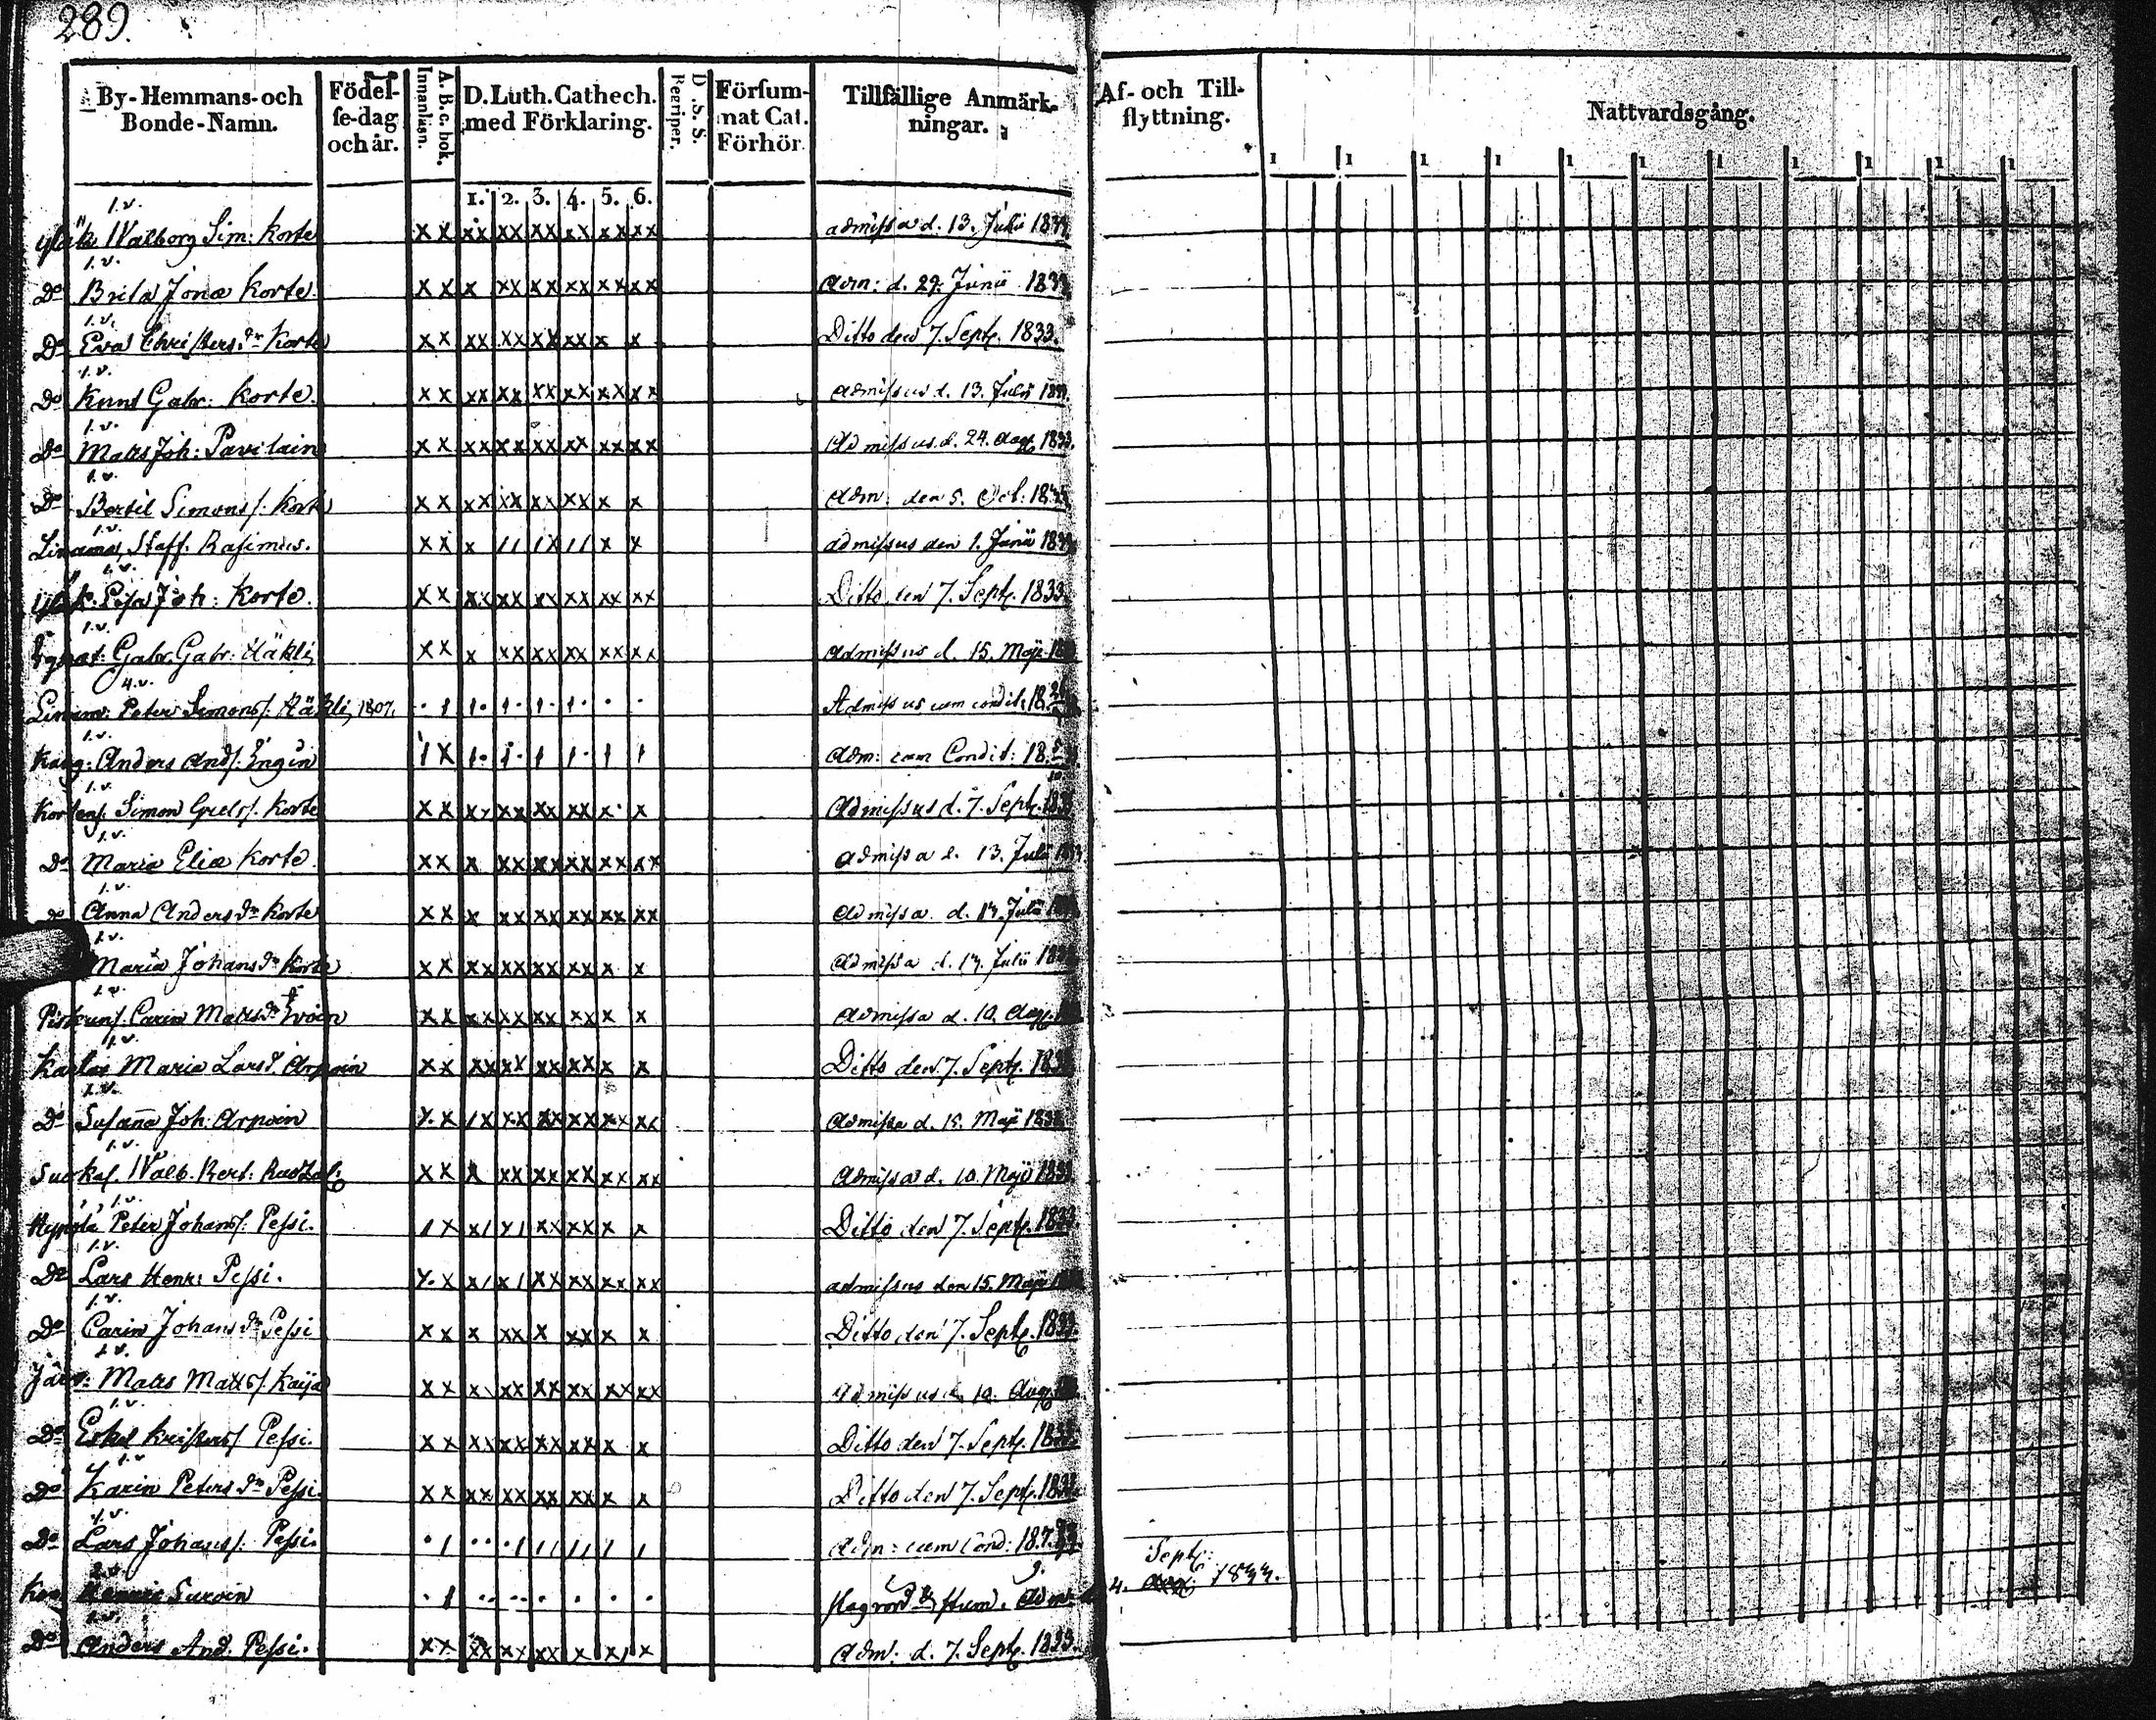 289.
By-Hemmans-och Bonde-Namn.
Födelse-dag och år.
A. B. c. bok. Innanläsn.
D. Luth. Cathech. med Förklaring.
D. S. S. Begriper.
Försummat Cat. Förhör
Tillfällige Anmärkningar.
Af- och Tillflyttning.
Nattvardsgång.
1. 2. 3. 4. 5. 6.
1 1 1 1 1 1 1 1 1 1 1
1.v.
Walborg Sim: Korte x x xx xx xx xx xx xx admissa d. 13. Julii
1.v.
Do Brita Jonæ Korte. x x x xx xx xx xx xx Adm: d. 29. Junii 1833
1.v.
Do Eva Christers dr Korte x x xx xx xx xx x x Ditto den 7. Sept. 1833.
1.v.
Do Knut Gabr: Korte. x x xx xx xx xx xx xx admissus d. 13. Julii
1.v.
Do Matts Joh: Pavilain x x xx xx xx xx xx xx Admissus d. 24. Aug. 1833.
1.v.
Do Bertil Simons/. Korte x x xx xx xx xx x x Adm: den 5. Oct:
1.v.
Staff. Rasimus. x x x 11 1x 11 x x admissus den 1. Junii
1.v.
Lisa Joh: Korte. x x xx xx xx xx xx xx Ditto den 7. Sept. 1833.
1.v.
Gabr. Gabr: Häkli x x x xx xx xx xx xx Admissus d. 15. Maji
4.v.
Peter Simons/. Häkli, 1807. . 1 1. 1. 1. 1. . . Admissus cum condit:
1.v.
Kang: Anders And/. Engin 1 x 1. 1. 1 1. 1 1 Adm: cum Condit:
1.v.
Simon Grels/. Korte x x xx xx xx xx x. x Admissus d. 7. Sept.
1.v.
Do Maria Eliæ Korte. x x x xx xx xx xx xx admissa d. 13. Julii
1.v.
Do Anna Anders dr Korte x x x xx xx xx xx xx Admissa d. 13. Julii
1.v.
Maria Johans dr Korte x x xx xx xx xx x x Admissa d. 13. Julii
1.v.
Carin Matts dr x x xx xx xx xx x x Admissa d. 10. Aug.
1.v.
Maria Lars d. Arpoin x x xx xx xx xx x x Ditto den 7. Sept.
1.v.
Do Susanna Joh: Arpoin x x 1x xx xx xx xx xx Admissa d. 15. Maji
1.v.
Walb. Bert: x x x xx xx xx xx xx Admissa d. 10. Maji
1.v.
Peter Johans/. Pessi. 1 x x1 x1 xx xx x x Ditto den 7. Sept. 1833.
1.v.
Do Lars Henr: Pessi. x x x1 x1 xx xx xx xx admissus den 15. Maji
1.v.
Do Carin Johans dr Pessi x x x xx x xx x x Ditto den 7. Sept. 1833.
1.v.
Matts Matts/. Kaija x x xx xx xx xx xx xx Admissus d. 10. Aug.
1.v.
Do Eskel Kristers/. Pessi. x x xx xx xx xx x x Ditto den 7. Sept. 1833.
1.v.
Do Karin Peters dr Pessi x x xx xx xx xx x x Ditto den 7. Sept.
4.v.
Do Lars Johans/. Pessi. . 1 .. .1 11 11 1 1 Adm: cum Cond:
Suroin . 1 .. .. . . . . Sept: 1833.
1.v.
Do Anders And. Pessi. x x xx xx xx x x1 x Adm: d. 7. Sept. 1833.